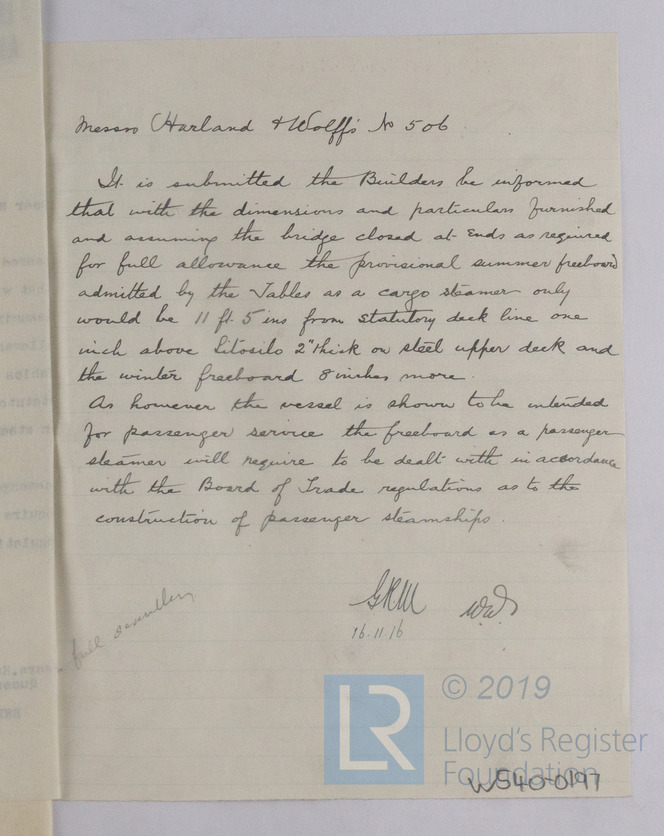 Messrs Harland & Wolff's No 506
It is submitted the Builders be informed
that with the dimensions and particulars furnished
and assuming the bridge closed at Ends as required
for full allowance the provisional summer freeboard
admitted by the Tables as a cargo steamer only
would be 11 ft 5 ins from statutory deck line one
inch above Litosilo 2" thick on steel upper deck and
the winter freeboard 8 inches more.
As however the vessel is shown to be intended
for passenger service the freeboard as a passenger
steamer will require to be dealt with in accordance
with the Board of Trade regulations as to the
construction of passenger steamships.
GRM
16.11.16
full
LR
© 2019
Lloyd's Register
Foundation
W540-0197